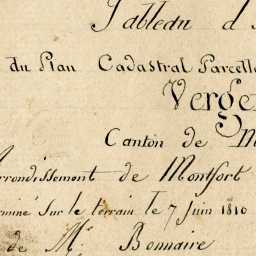 Tableau d
du Plan Cadastral Parcelle
Verge
Canton de M
rrondissement de Montfort
rminé sur le terrain le 7 Juin 1810
de Mr. Bonnaire